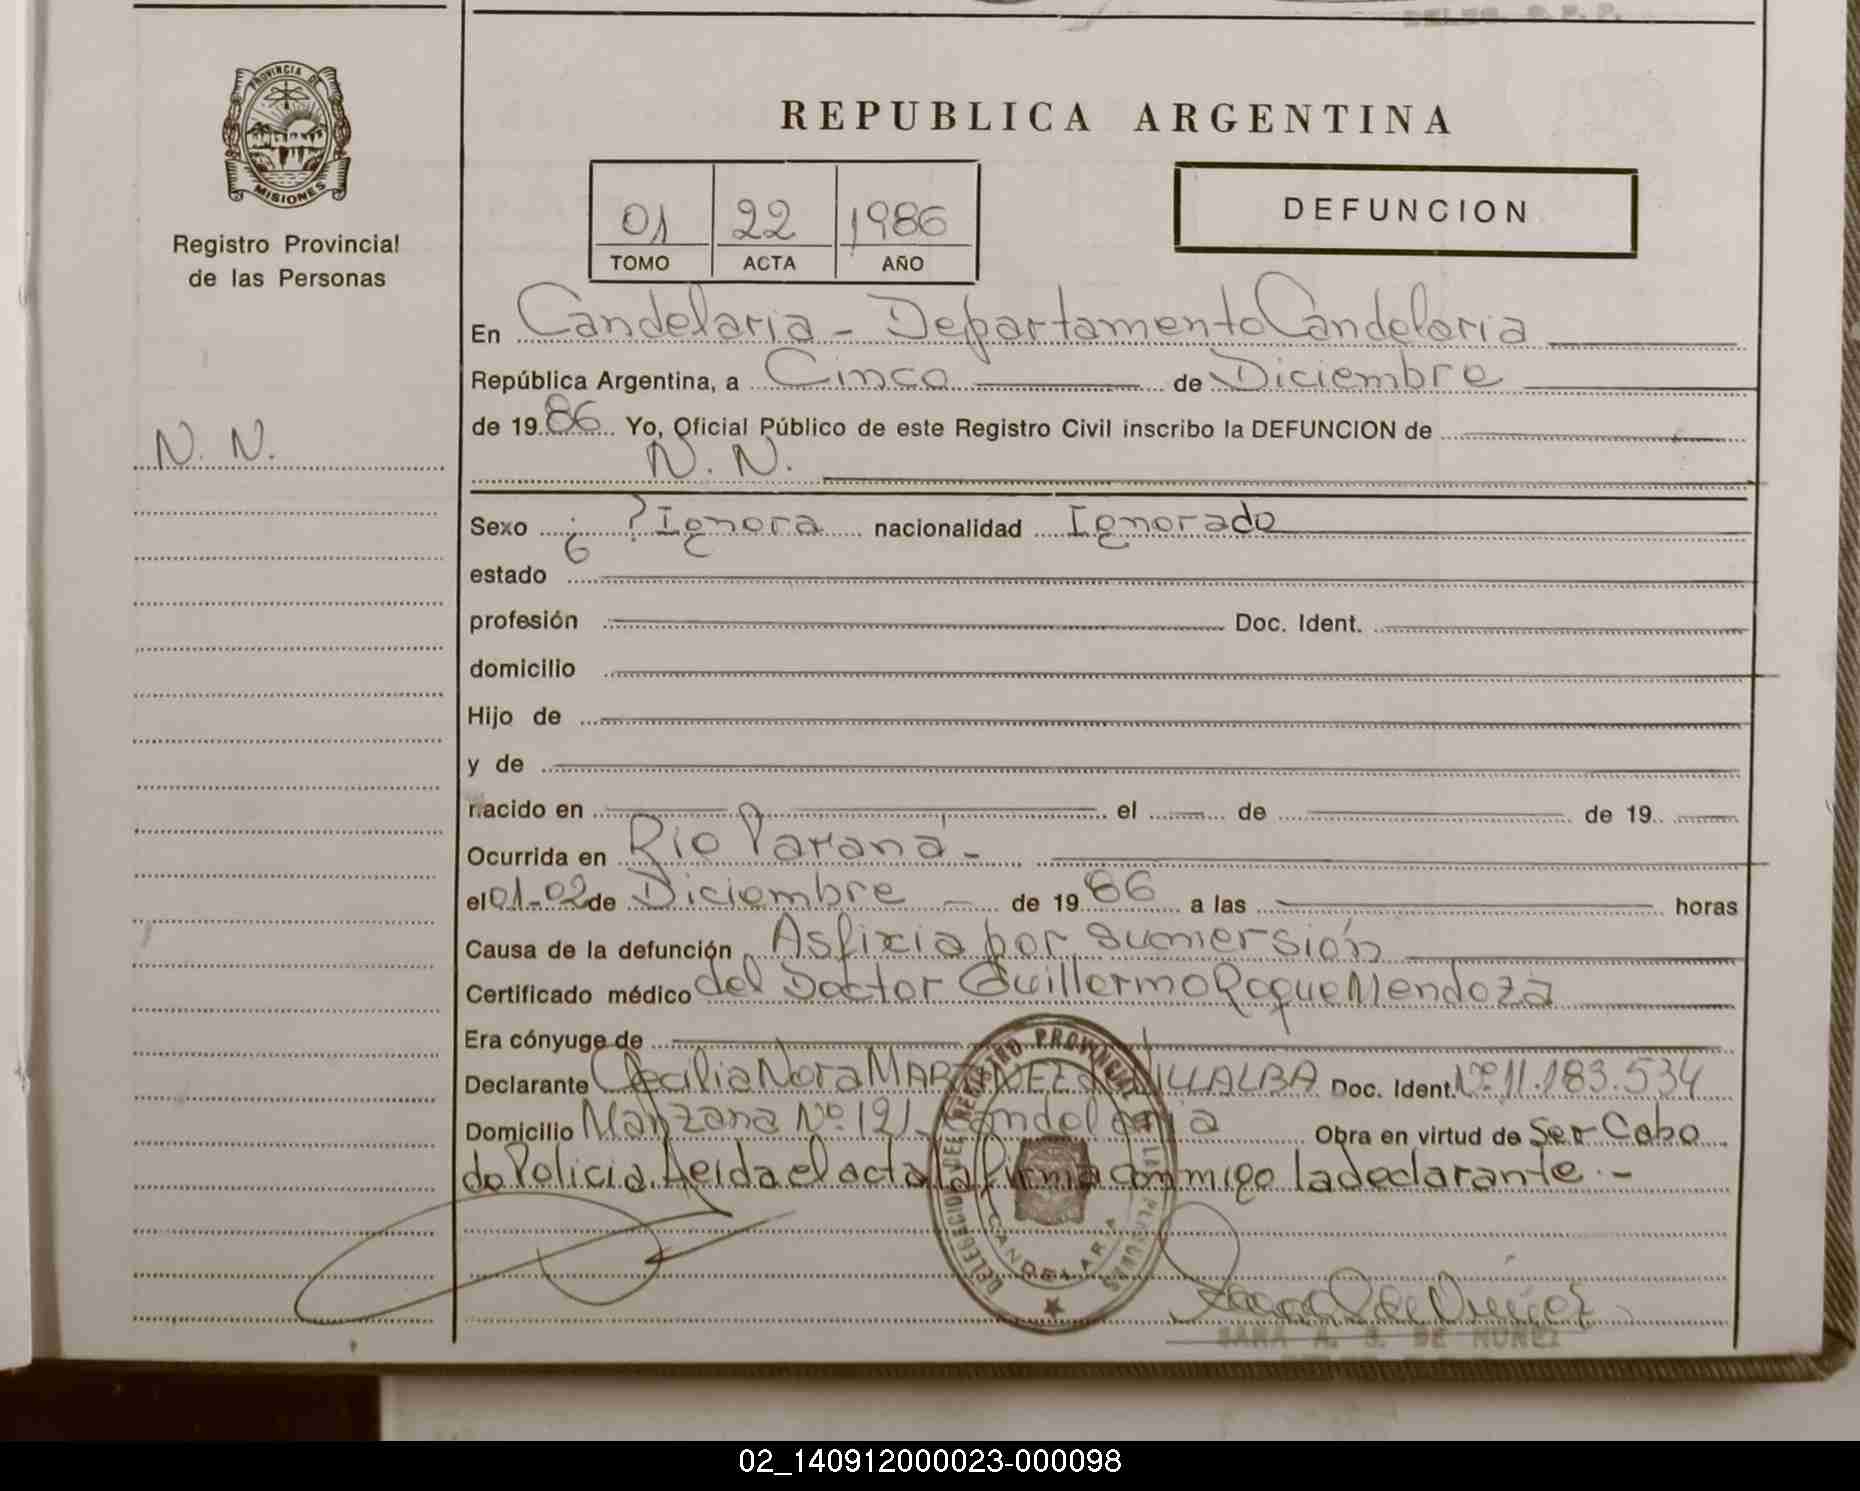 PROVINCIA DE
MISIONES
Registro Provincial
de las Personas
N. N.
REPUBLICA ARGENTINA
01 22 1986
TOMO ACTA AÑO
DEFUNCION
En Candelaria - Departamento Candelaria
República Argentina, a Cinco de Diciembre
de 1986 Yo, Oficial Público de este Registro Civil inscribo la DEFUNCION de
N. N.
Sexo ¿ ? Ignora nacionalidad Ignorado
estado
profesión Doc. Ident.
domicilio
Hijo de
y de
nacido en el de de 19
Ocurrida en Rio Paraná -
el 01-02 de Diciembre - de 19 86 a las horas
Causa de la defunción Asfixia por sumersión
Certificado médico del Doctor Guillermo Roque Mendoza
Era cónyuge de
Declarante Cecilia Nora VILLALBA Doc. Ident. Nº 11.183.534
Domicilio Manzana Nº 121 - Candelaria Obra en virtud de Ser Cabo
de Policia. Leida el acta la firma conmigo la declarante. -
DELEGACION DEL REGISTRO PROVINCIAL DE LAS PERSONAS
CANDELARIA
SARA A. S. DE NUÑEZ
02_140912000023-000098